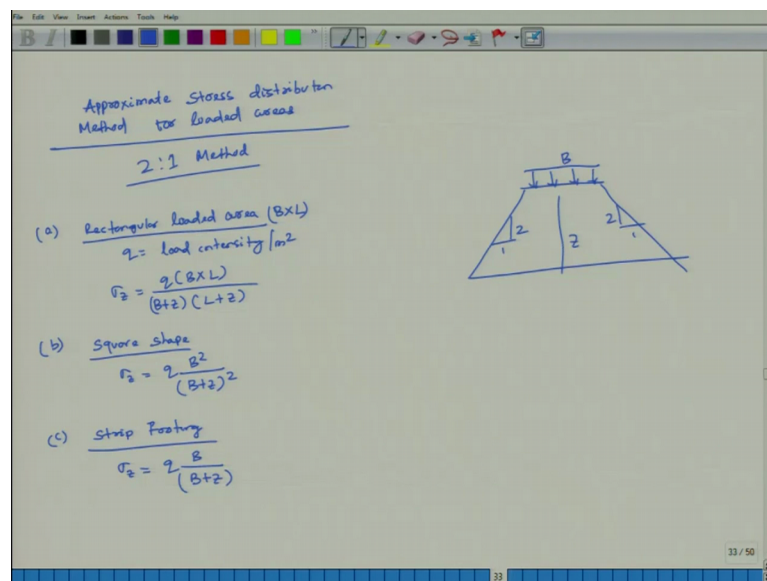 File Edit View Insert Actions Tools Help
B I
Approximate stress distribution
Method for loaded areas
2:1 Method
(a) Rectangular loaded area (B×L)
q = load intensity /m²
σz = q(B×L) / (B+z)(L+z)
(b) Square shape
σz = q B² / (B+z)²
(c) Strip Footing
σz = q B / (B+z)
B
2 2
1 z 1
33 / 50
33